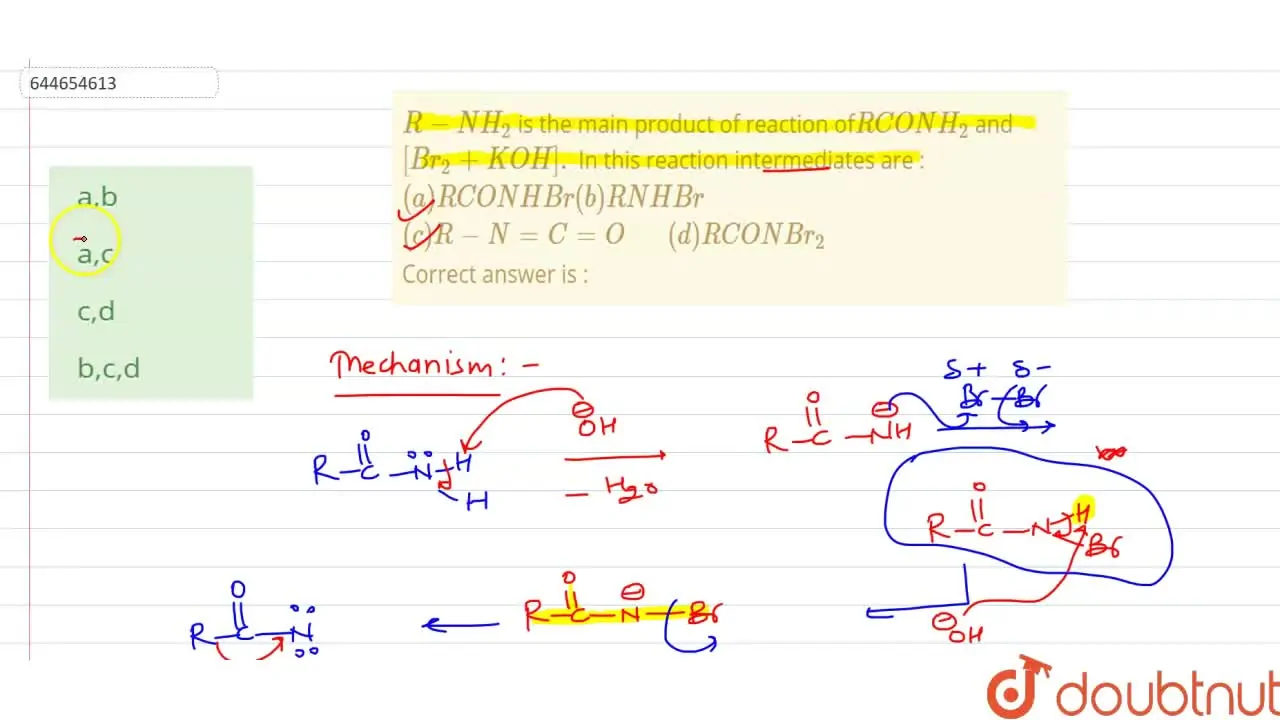 644654613
R − NH₂ is the main product of reaction ofRCONH₂ and
[Br₂ + KOH]. In this reaction intermediates are :
(a)RCONHBr(b)RNHBr
(c)R − N = C = O (d)RCONBr₂
Correct answer is :
a,b
a,c
c,d
b,c,d
Mechanism: -
δ+ δ-
Br-Br
⊖
OH
O
R-C-N-H
H
- H₂O
O ⊖
R-C-NH
O
R-C-N H
Br
⊖
OH
O ⊖
R-C-N-Br
O
R-C-N
doubtnut